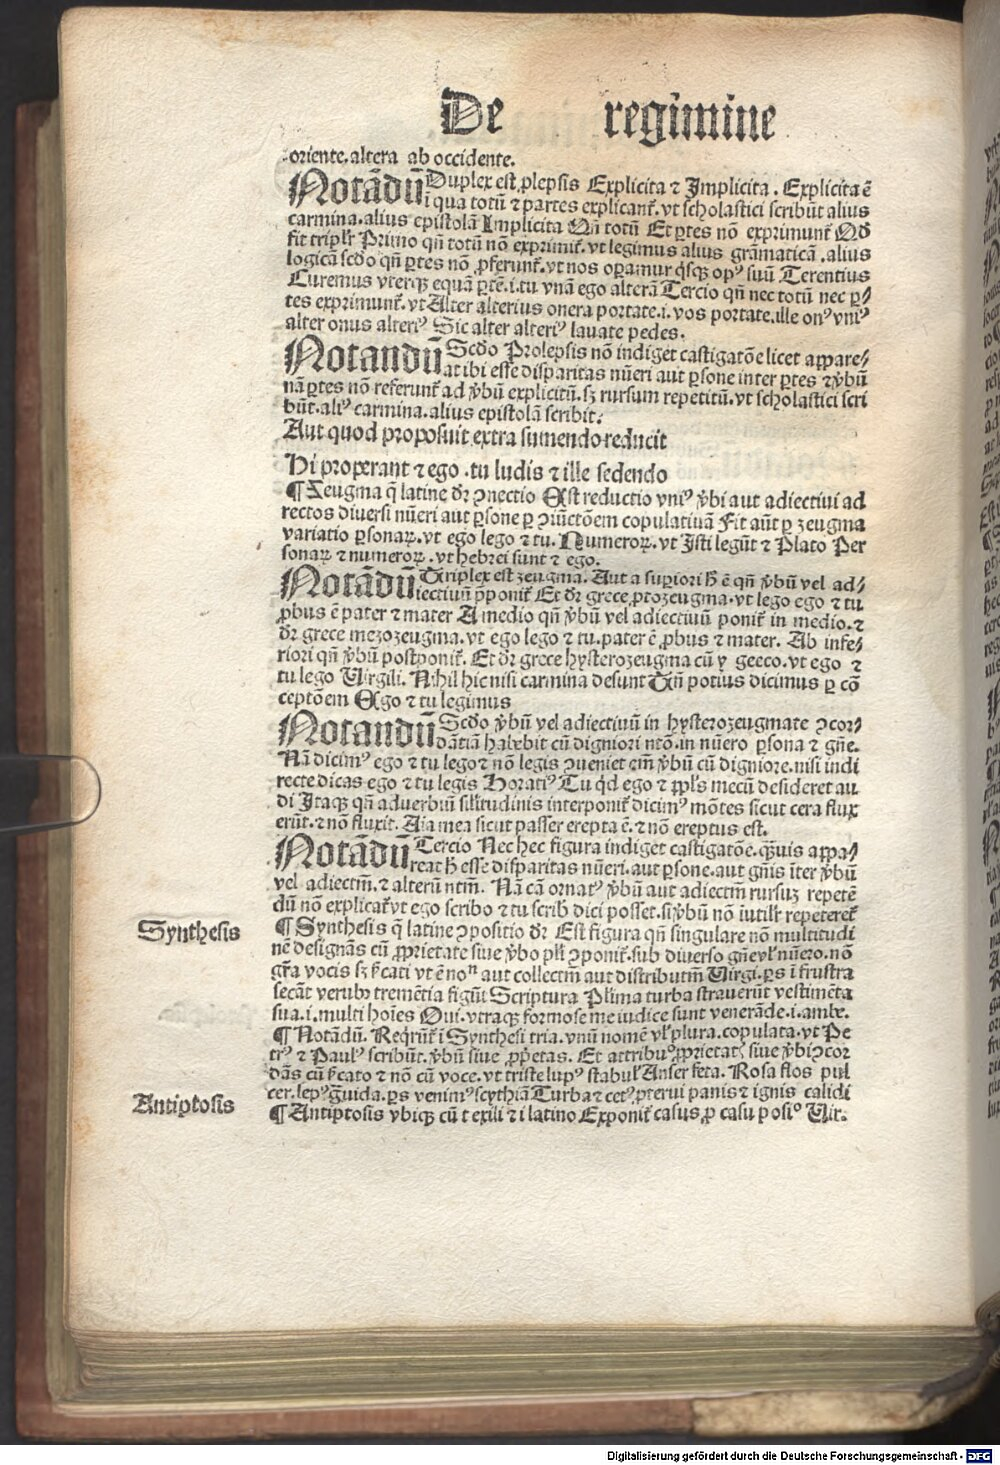 De regimine
oriente.altera ab occidente.
Notãdũ Duplex est ꝓlepsis Explicita ⁊ Implicita. Explicita ẽ
ĩ qua totũ ⁊ partes explicant᷑. vt scholastici scribũt alius
carmina.alius epistolã Implicita Qñ totũ Et ꝑtes nõ exprimunt᷑ Qđ
fit tripłr Primo qñ totũ nõ exprimit᷑. vt legimus alius grãmaticã.alius
logicã scđo qñ ꝑtes nõ ꝓferunt᷑. vt nos oꝑamur q̇sqꝫ opꝰ suũ Terentius
Curemus vterqꝫ equã ꝑtẽ.i.tu vnã ego alterã Tercio qñ nec totũ nec ꝑ⸗
tes exprimunt᷑. vt Alter alterius onera portate.i.vos portate.ille onꝰ vniꝰ
alter onus alteriꝰ Sic alter alteriꝰ lauate pedes.
Notandũ Scđo Prolepsis nõ indiget castigatõe licet appare⸗
at ibi esse disparitas nũeri aut ꝑsone inter ꝑtes ⁊ v̇bũ
nã ꝑtes nõ referunt᷑ ad v̇bũ explicitũ.sꝫ rursum repetitũ.vt scholastici scri
bũt.aliꝰ carmina.alius epistolã scribit:
Aut quod proposuit extra sumendo reducit
Hi properant ⁊ ego.tu ludis ⁊ ille sedendo
¶ Zeugma q̃ latine dr̃ ꝯnectio Est reductio vniꝰ v̇bi aut adiectiui ad
rectos diuersi nũeri aut ꝑsone ꝑ ꝯiũctõem copulatiuã Fit aũt ꝑ zeugma
variatio ꝑsonaꝝ.vt ego lego ⁊ tu. Numeroꝝ.vt Isti legũt ⁊ Plato Per
sonaꝝ ⁊ numeroꝝ.vt hebrei sunt ⁊ ego.
Notãdũ Triplex est zeugma. Aut a suꝑiori h̃ ẽ qñ v̇bũ vel ad⸗
iectiuũ p̃ponit᷑ Et dr̃ grece ꝓtozeugma.vt lego ego ⁊ tu
ꝓbus ẽ pater ⁊ mater A medio qñ v̇bũ vel adiectiuũ ponit᷑ in medio.⁊
dr̃ grece mezozeugma.vt ego lego ⁊ tu.pater ẽ ꝓbus ⁊ mater. Ab infe⸗
riori qñ v̇bũ postponit᷑. Et dr̃ grece hysterozeugma cũ y geeco.vt ego ⁊
tu lego Virgili. Nihil hic nisi carmina desunt Tñ potius dicimus ꝑ cõ
ceptõem Ego ⁊ tu legimus
Notandũ Scđo v̇bũ vel adiectiuũ in hysterozeugmate ꝯcor⸗
dãtiã habebit cũ digniori ntõ.in nũero ꝑsona ⁊ gñe.
Nã dicimꝰ ego ⁊ tu lego ⁊ nõ legis ꝯueniet em̃ v̇bũ cũ digniore.nisi indi
recte dicas ego ⁊ tu legis Horatiꝰ Tu qđ ego ⁊ ppłs mecũ desideret au
di Itaqꝫ qñ aduerbiũ silĩtudinis interponit᷑ dicimꝰ mõtes sicut cera flux
erũt.⁊ nõ fluxit. Aĩa mea sicut passer erepta ẽ.⁊ nõ ereptus est.
Notãdũ Tercio Nec hec figura indiget castigatõe.q̃uis appa⸗
reat h̃ esse disparitas nũeri.aut ꝑsone.aut gñis ĩter v̇bũ
vel adiectm̃.⁊ alterũ ntm̃. Nã cã ornatꝰ v̇bũ aut adiectm̃ rursuꝫ repetẽ
dũ nõ explicat᷑ vt ego scribo ⁊ tu scrib dici posset.si v̇bũ nõ iutilr̃ repeteret᷑
Synthesis
¶ Synthesis q̃ latine ꝯpositio dr̃ Est figura qñ singulare nõ multitudi
nẽ designãs cũ ꝓprietate siue v̇bo płi ꝯponit᷑.sub diuerso gñe vł nũero.nõ
gr̃a vocis sꝫ s̃cati vt ẽ noⁿ aut collectm̃ aut distributm̃ Virgi.ꝑs ĩ frustra
secãt verubꝫ tremẽtia figũt Scriptura Płima turba strauerũt vestimẽta
sua.i.multi hoĩes Oui.vtraqꝫ formose me iudice sunt venerãde.i.ambe.
¶ Notãdũ. Reqrũt᷑ ĩ Synthesi tria.vnũ nomẽ vł plura.copulata.vt Pe
trꝰ ⁊ Paulꝰ scribũt.v̇bũ siue ꝓp̃etas. Et attribuꝰ ꝓprietat᷑ siue v̇bi ꝯcor
dãs cũ s̃cato ⁊ nõ cũ voce.vt triste lupꝰ stabuł Anser feta. Rosa flos pul
cer.lepꝰ g̃uida.ꝑs venimꝰ scythiã Turba ⁊ cetꝰ.ꝓterui panis ⁊ ignis calidi
Antiptosis
¶ Antiptosis vbiqꝫ cũ t exili ⁊ i latino Exponit᷑ casus ꝓ casu posi° Vir.
Digitalisierung gefördert durch die Deutsche Forschungsgemeinschaft - DFG